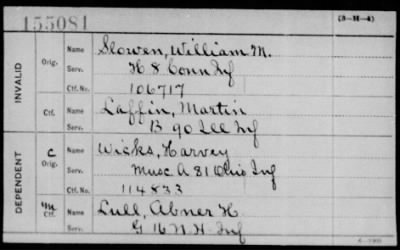 155081
(3-H-4)
INVALID
Orig.
Name Slowen, William M.
Serv. H 8 Conn Inf
Ctf. No. 106717
Ctf.
Name Laffin, Martin
Serv. B 90 Ill Inf
DEPENDENT
C
Orig.
Name Wicks, Harvey
Serv. Musc A 81 Ohio Inf
Ctf. No. 114833
M
Ctf.
Name Lull, Abner H
Serv. G 16 N.H. Inf